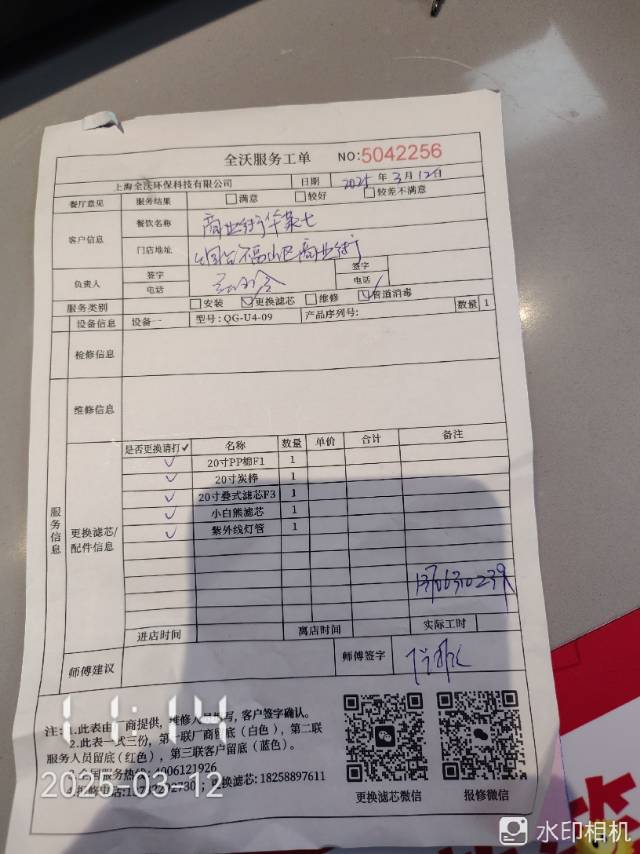 全沃服务工单 NO:5042256
上海全沃环保科技有限公司 日期 2025年3月12日
餐厅意见 服务结果 满意 较好 较差不满意
客户信息 餐饮名称 商业街华莱士
门店地址 烟台福山区商业街
负责人 签字 签字
电话 电话
服务类别 安装 更换滤芯 维修 管道消毒
设备信息 设备一 型号:QG-U4-09 产品序列号: 数量 1
检修信息
维修信息
服务信息
更换滤芯/配件信息
是否更换请打✓ 名称 数量 单价 合计 备注
✓ 20寸PP棉F1 1
✓ 20寸炭棒 1
✓ 20寸叠式滤芯F3 1
✓ 小白熊滤芯 1
✓ 紫外线灯管 1
进店时间 离店时间 实际工时
师傅建议 师傅签字
注:1.此表由 商提供,维修人 写,客户签字确认。
2.此表一式三份,第一联厂商留底(白色),第二联
服务人员留底(红色),第三联客户留底(蓝色)。
全国服务热线:4006121926
更换滤芯:18258897611
更换滤芯微信 报修微信
11:14
2025-03-12
水印相机